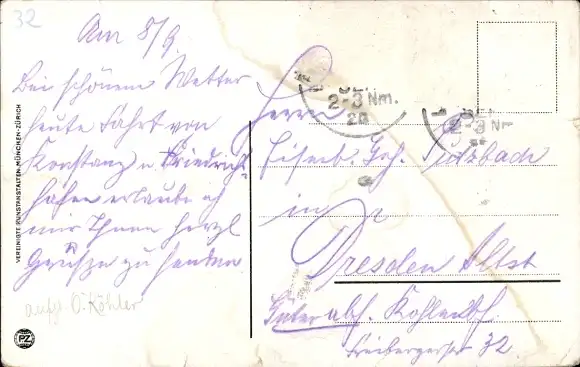 32
Am 8/9.
Bei schönem Wetter
heute Fahrt von
Konstanz n. Friedrichs-
hafen erlaube ich
mir Ihnen herzl
Grüße zu senden
O. Köhler
VEREINIGTE KUNSTANSTALTEN-MÜNCHEN-ZÜRICH
PZ
2-3 Nm.
2-3 Nm
Herrn
Eisenb. Geh.
in
Dresden Altst
Güterabf. Kohlenbf.
Freibergerstr 32